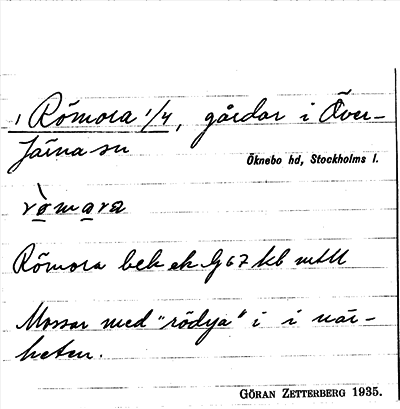 1 Römora 1/4, gårdar i Över-
Järna sn
Öknebo hd, Stockholms l.
ròmara
Römora bek ek G 67 kb mtll
Mossar med "rödya" i i när-
heten.
GÖRAN ZETTERBERG 1935.